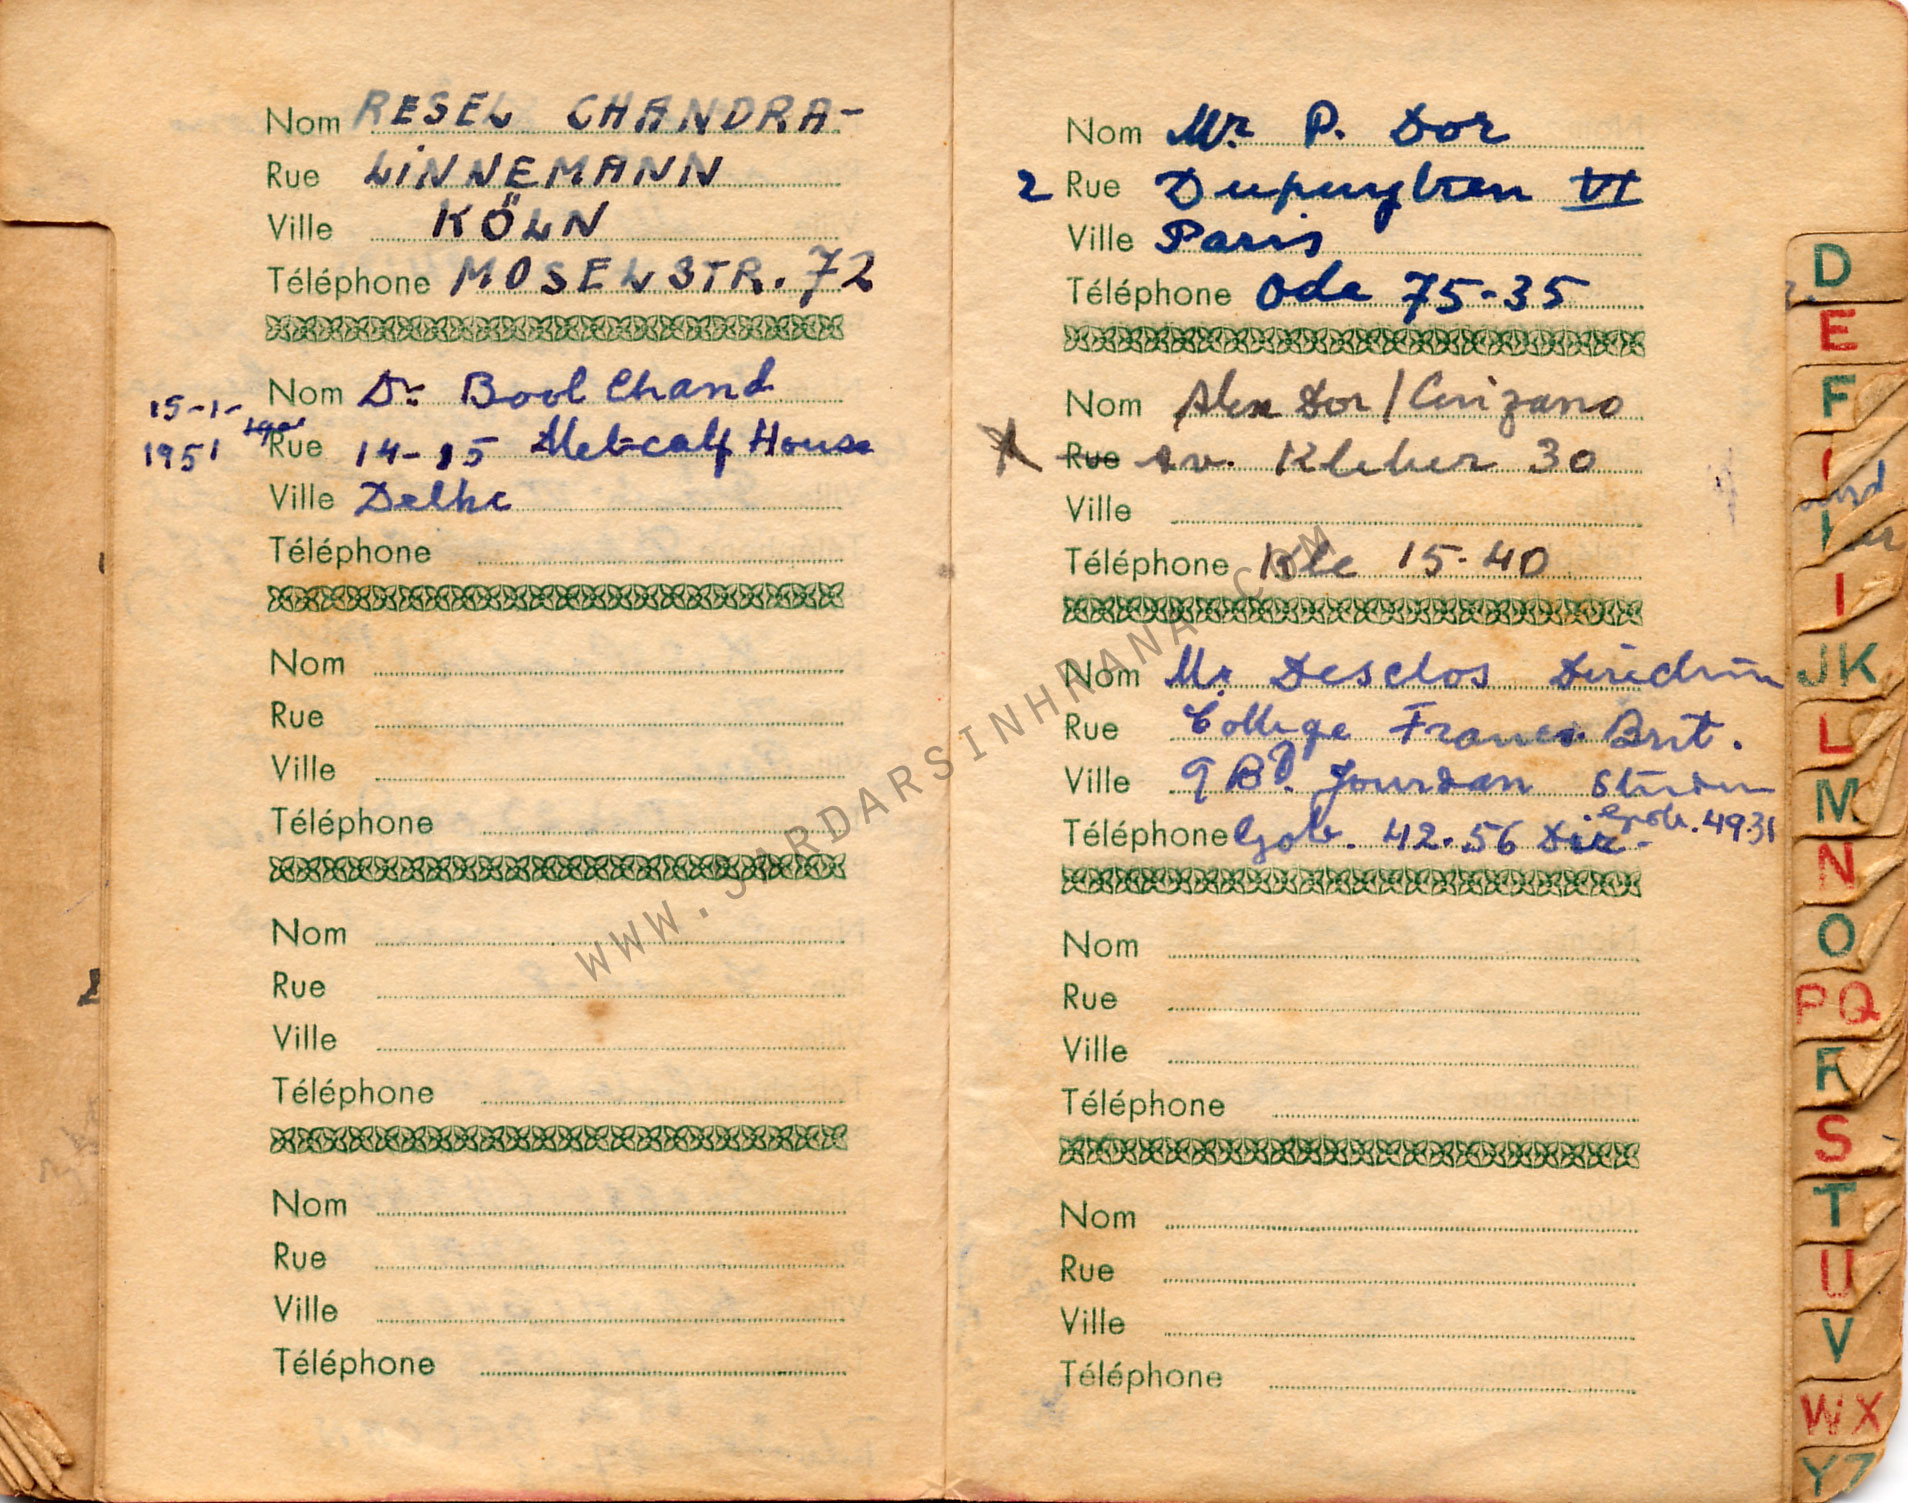 Nom RESEL CHANDRA-
Rue LINNEMANN
Ville KÖLN
Téléphone MOSELSTR. 72
Nom Dr Bool Chand
15-1-
1951
Rue 14-15 Metcalf House
Ville Delhi
Téléphone
Nom
Rue
Ville
Téléphone
Nom
Rue
Ville
Téléphone
Nom
Rue
Ville
Téléphone
Nom Mr. P. Dor
2 Rue Dupuytren VI
Ville Paris
Téléphone Ode 75-35
Nom Alex Dor / Cinzano
X Rue Av. Kleber 30
Ville
Téléphone Kle 15-40
Nom Mr. Desclos
Rue College Franco. Brit.
Ville 9 Bd. Jourdan
Gob. 49.31
Téléphone Gob. 42.56 Dir.
Nom
Rue
Ville
Téléphone
Nom
Rue
Ville
Téléphone
D
E
F
I
JK
L
M
N
O
PQ
R
S
T
U
V
WX
YZ
WWW.SARDARSINHRANA.COM